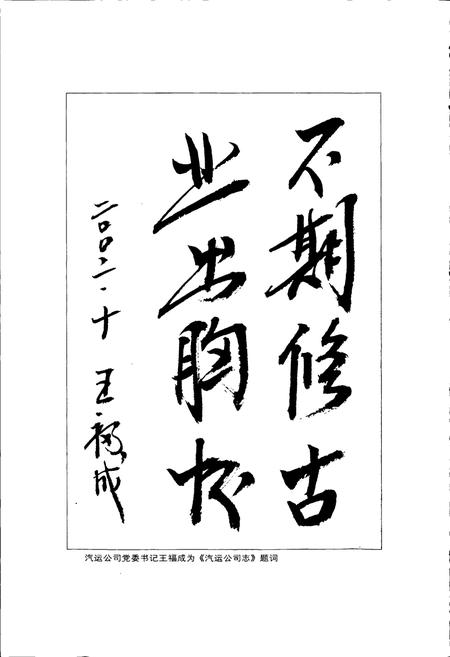 不期修古
业出胸怀
二00二·十 王福成
汽运公司党委书记王福成为《汽运公司志》题词